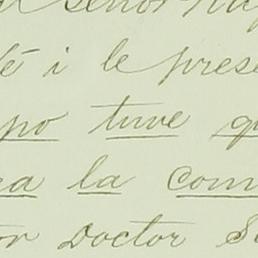 señor
té i le prese
po tuve q
ra la com
or Doctor S